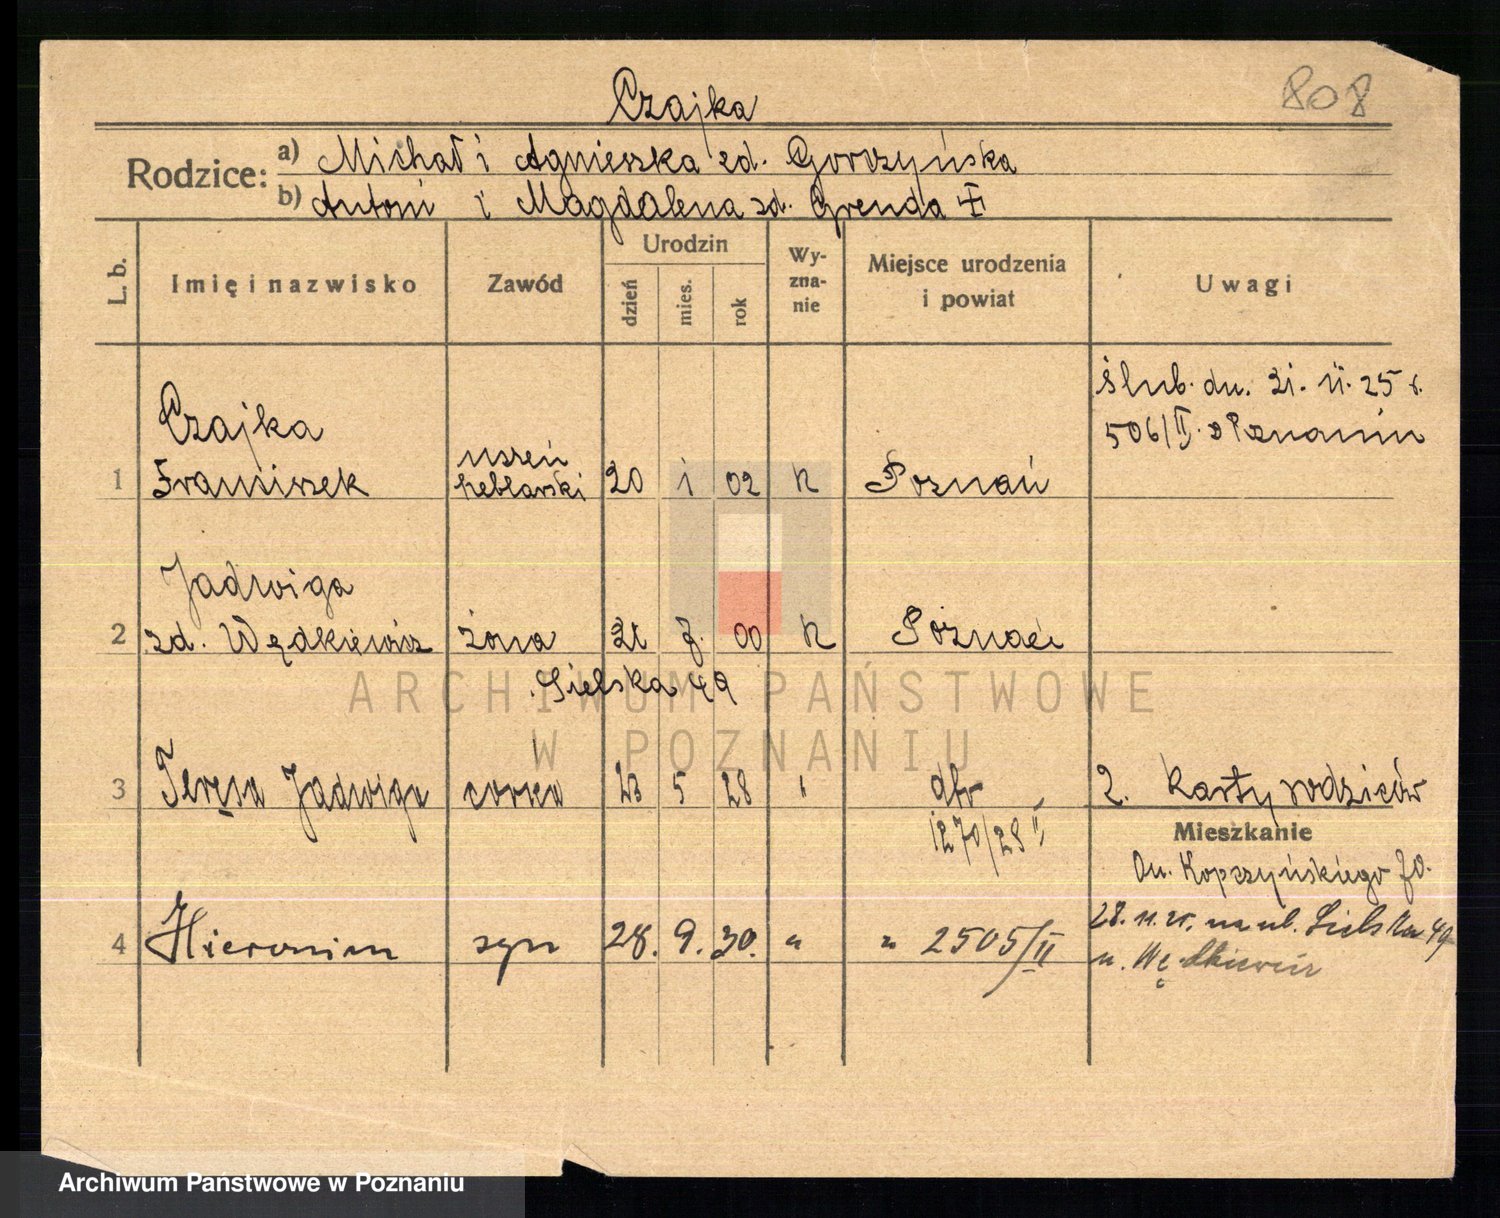 Czajka
808
Rodzice: a) Michał i Agnieszka zd. Gorczyńska
b) Antoni i Magdalena zd. Grenda
L. b. Imię i nazwisko Zawód Urodzin dzień mies. rok Wy-zna-nie Miejsce urodzenia i powiat Uwagi
ślub. dn. 21. 11. 25 r.
506/II. Poznaniu
Czajka
1 Franciszek uczeń heblarski 20 1 02 k Poznań
Jadwiga
2 zd. Wędkiewicz żona 21 7. 00 k Poznań
Sielska 49
3 Teresa Jadwiga corka 23 5 28 " dtr 2. karty rodziców
1270/28 II
Mieszkanie
On. Kopczyńskiego 70.
28. 11. na ul. Sielska 49
4 Hieronim syn 28. 9. 30. " " 2505/II u. Wędkiewicz
ARCHIWUM PAŃSTWOWE
W POZNANIU
Archiwum Państwowe w Poznaniu